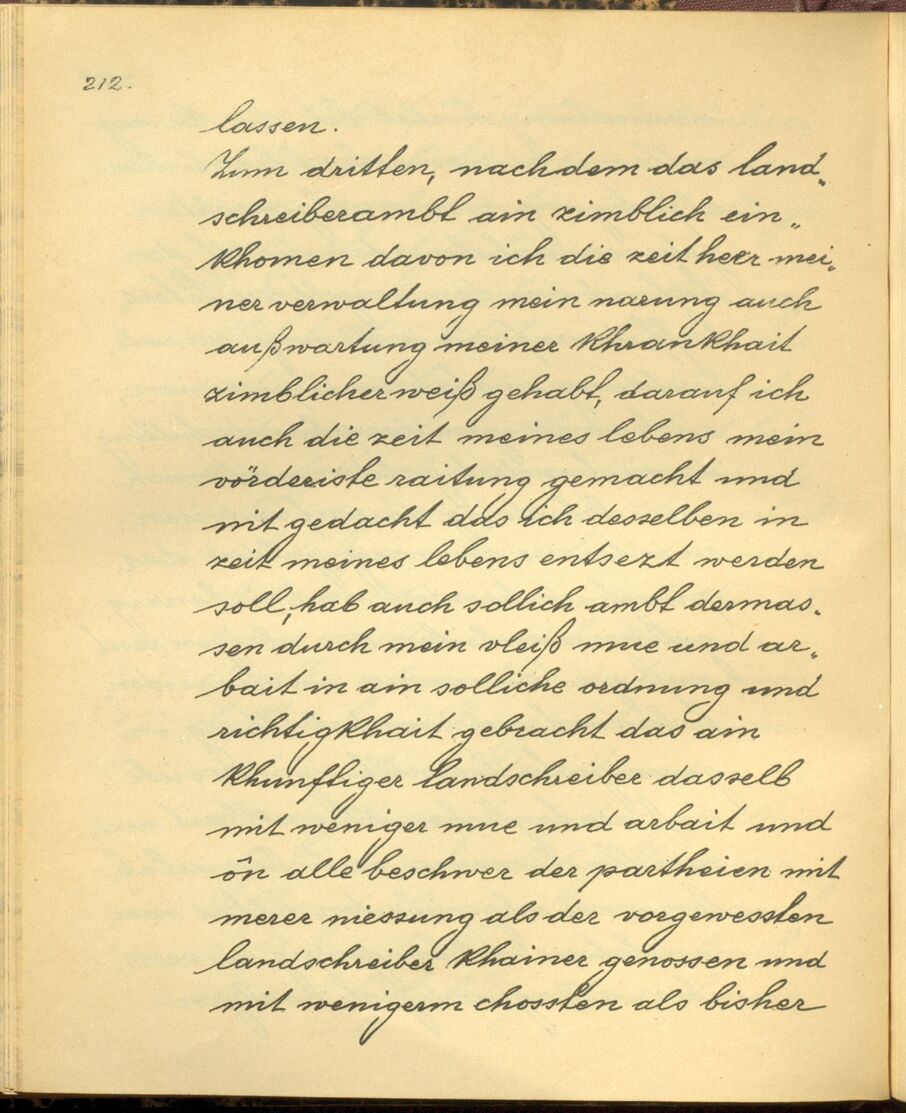 212.
lassen.
Zum dritten, nachdem das land„
schreiberambt ain zimblich ein„
khomen davon ich die zeit herr mei„
ner verwaltung mein narung auch
außwartung meiner khrankhait
zimblicher weiß gehabt, darauf ich
auch die zeit meines lebens mein
vörderiste raitung gemacht und
nit gedacht das ich desselben in
zeit meines lebens entsezt werden
soll, hab auch sollich ambt dermas„
sen durch mein vleiß mue und ar„
bait in ain solliche ordnung und
richtigkhait gebracht das ain
khunftiger landschreiber dasselb
mit weniger mue und arbait und
ôn alle beschwer der partheien mit
merer niessung als der vorgewessten
landschreiber khainer genossen und
mit wenigerm chossten als bisher